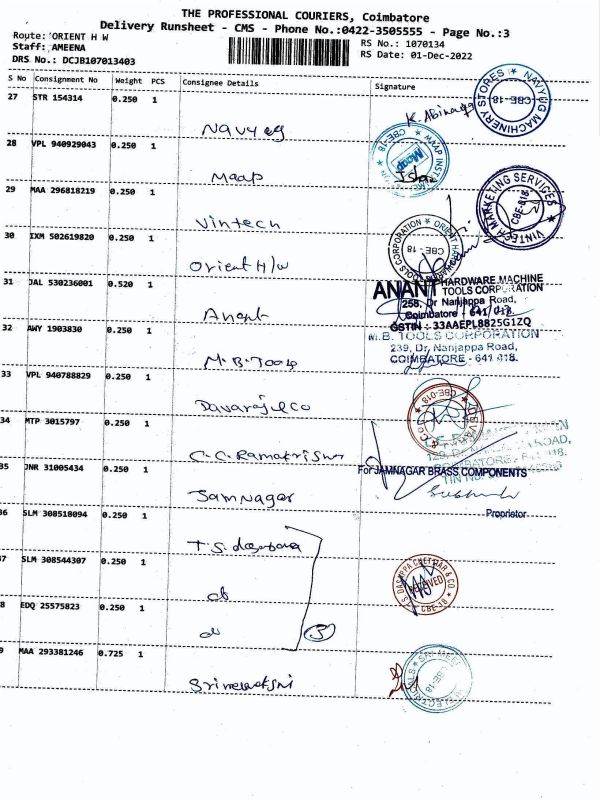 THE PROFESSIONAL COURIERS, Coimbatore
Delivery Runsheet - CMS - Phone No.:0422-3505555 - Page No.:3
Route: ORIENT H W
Staff: AMEENA
RS No.: 1070134
DRS No.: DCJB107013403
RS Date: 01-Dec-2022
S No Consignment No Weight PCS Consignee Details Signature
27 STR 154314 0.250 1
Navyug
K. Abinaya
NAVYUG MACHINERY STORES
CBE-18
28 VPL 940929043 0.250 1
Maap
CBE-18 MAAP
Maap
29 MAA 296818219 0.250 1
Vintech
VINTECH MARKETING SERVICES
CBE-018
30 IXM 502619820 0.250 1
Orient H/w
ORIENT HARDWARE TOOLS CORPORATION
CBE - 18
31 JAL 530236001 0.520 1
Anant
ANANT HARDWARE MACHINE
TOOLS CORPORATION
258, Dr Nanjappa Road,
Coimbatore - 641 018.
GSTIN : 33AAEPL8825G1ZQ
32 AWY 1903830 0.250 1
M.B. Tools
M.B. TOOLS CORPORATION
239, Dr. Nanjappa Road,
COIMBATORE - 641 018.
33 VPL 940788829 0.250 1
Davaraj & Co
CBE-018
& CO
34 MTP 3015797 0.250 1
C.C. Ramakrisn
ROAD,
35 JNR 31005434 0.250 1
Jamnagar
For JAMNAGAR BRASS COMPONENTS
Proprietor
36 SLM 308518094 0.250 1
T.S.
7 SLM 308544307 0.250 1
do
CHETTIAR & CO.
RECEIVED
CBE-18
8 EDQ 25575823 0.250 1
do
3
9 MAA 293381246 0.725 1
ELECTRICALS
CBE-18